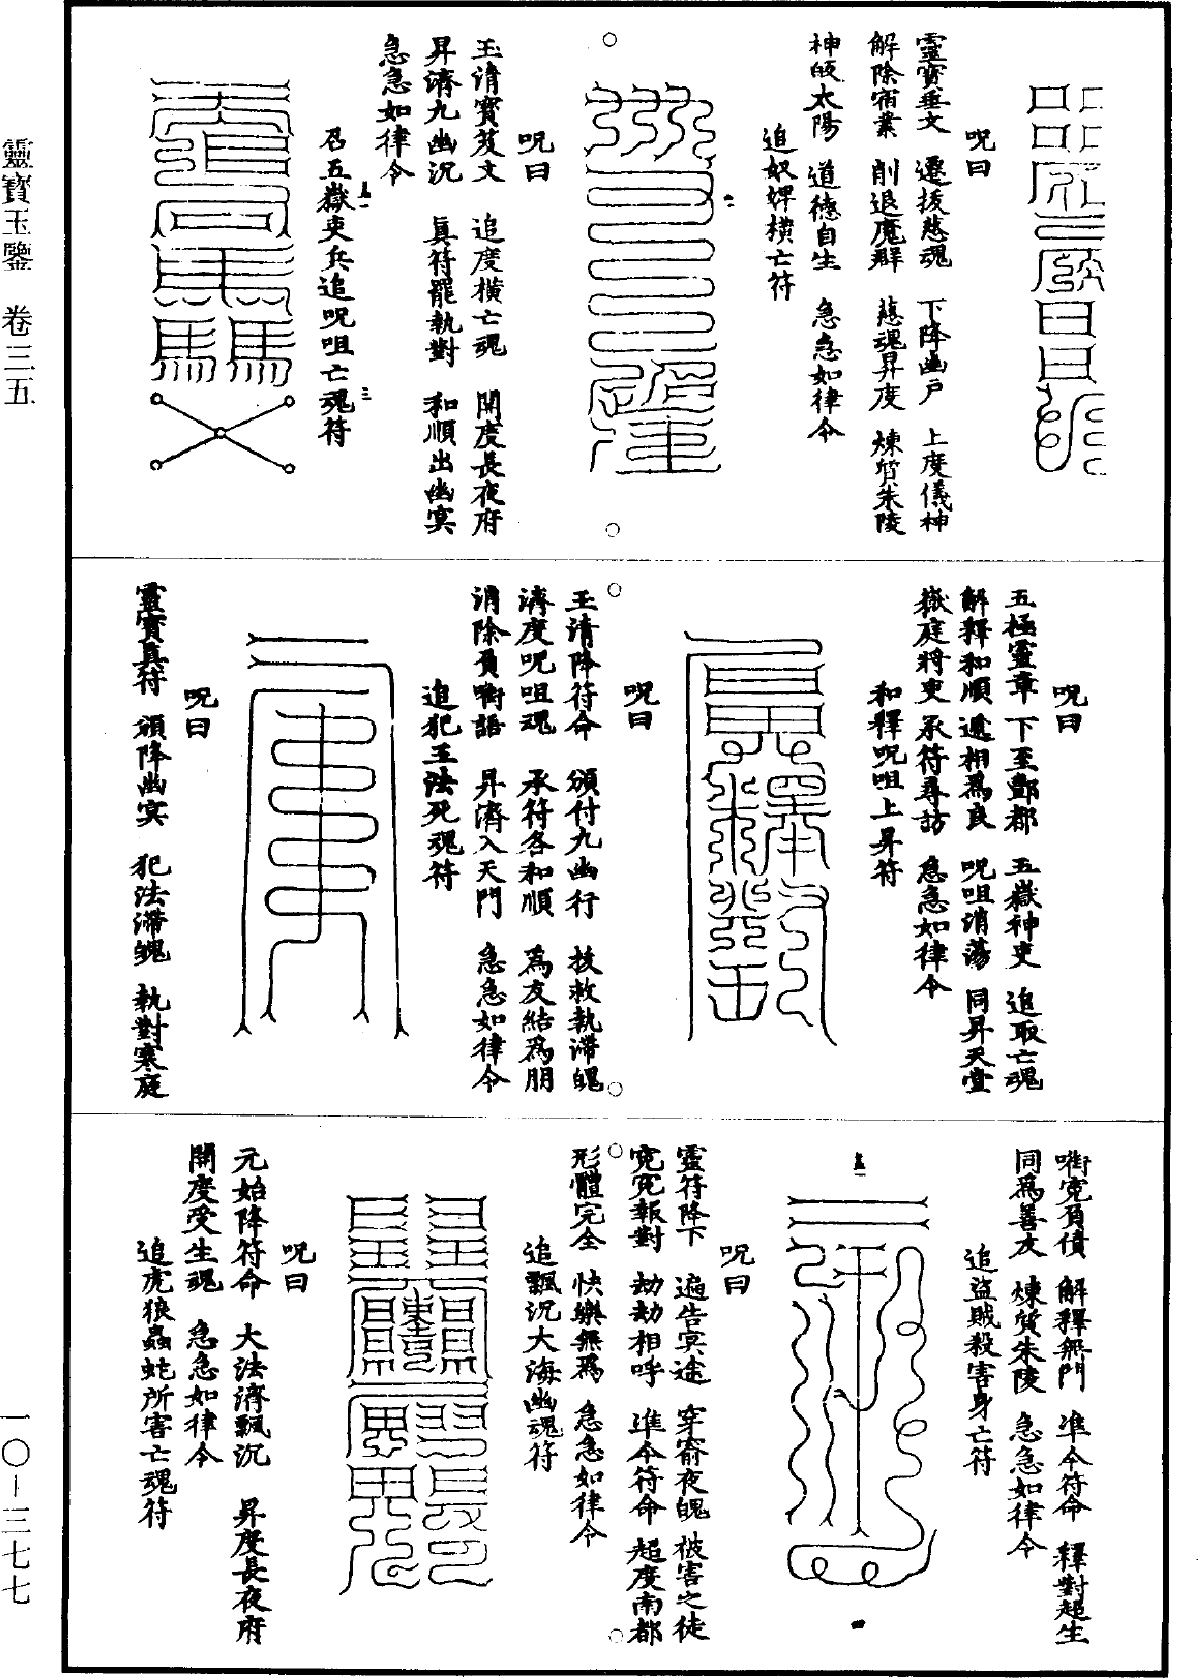 靈寶玉鑒　卷三五
呪曰
靈寶垂文　遷拔慈魂　下降幽戶　上度儀神
解除宿業　削退魔群　慈魂昇度　煉質朱陵
神皈太陽　道德自生　急急如律令
追奴婢橫亡符
二
呪曰
玉清寶笈文　追度橫亡魂　開度長夜府
昇濟九幽沉　真符罷執對　和順出幽冥
急急如律令
召五嶽吏兵追呪咀亡魂符
五一
三
呪曰
五極靈章　下至酆都　五嶽神吏　追取亡魂
解釋和順　遞相為良　呪咀消蕩　同昇天堂
嶽庭將吏　承符尋訪　急急如律令
和釋呪咀上昇符
呪曰
玉清降符命　頒付九幽行　拔救執滯魄
濟度呪咀魂　承符各和順　為友結為朋
消除負啣語　昇濟入天門　急急如律令
追犯王法死魂符
呪曰
靈寶真符　頒降幽冥　犯法滯魄　執對寒庭
啣冤負債　解釋無門　準今符命　釋對超生
同為善友　煉質朱陵　急急如律令
追盜賊殺害身亡符
五一
四
呪曰
靈符降下　遍告冥途　穿窬夜魄　被害之徒
冤冤報對　劫劫相呼　準今符命　超度南都
形體完全　快樂無為　急急如律令
追飄沉大海幽魂符
呪曰
元始降符命　大法濟飄沉　昇度長夜府
開度受生魂　急急如律令
追虎狼蟲蛇所害亡魂符
一〇—三七七